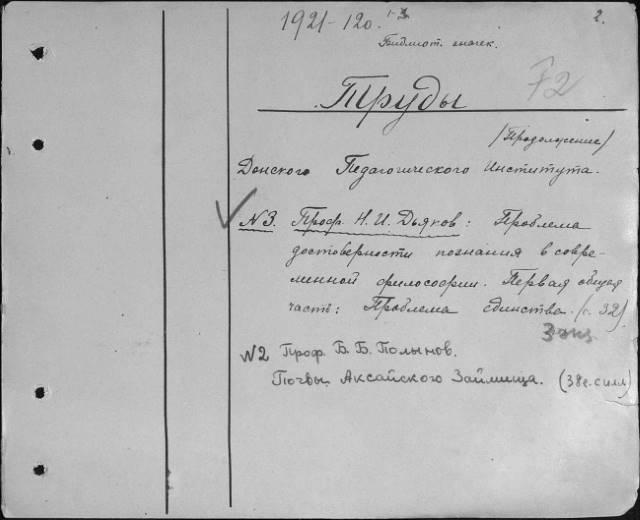 1921-120. 1-3
2.
Библиот. значек.
72
Труды
/Продолжение/
Донского Педагогического Института.
N3. Проф. Н. И. Дьяков: Проблема
достоверности познания в совре-
менной философии. Первая общая
часть: Проблема единства. (с. 32)
3 экз.
N2 Проф. Б. Б. Полынов.
Почвы Аксайского Займища. (38с.